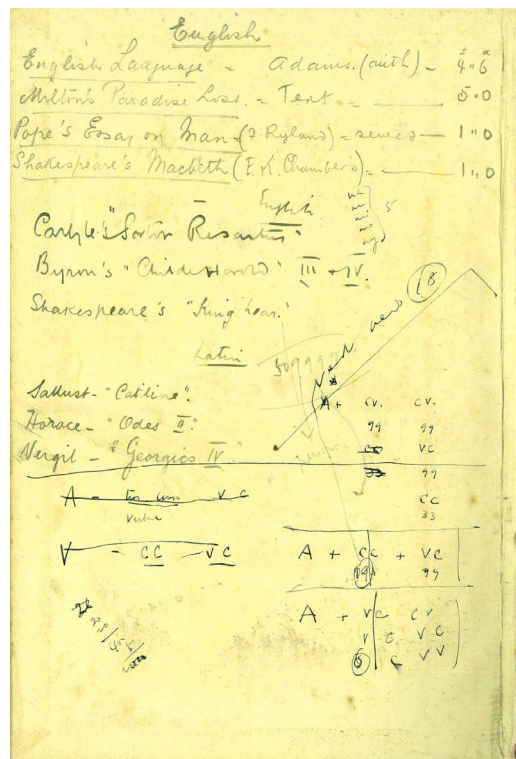 English
s d
English Language - Adams. (auth) - 4"6
Milton's Paradise Loss. = Text - 5"0
Pope's Essay on Man - (J. Ryland) = series - 1"0
Shakespeare's Macbeth (E. K. Chambers). - 1"0
English 5
Carlyle's "Sartor Resartus"
Byron's "Childe Harold" III + IV.
Shakespeare's "King Lear."
18
Latin
Sallust - "Catiline".
Horace - "Odes II".
Vergil - "Georgics IV"
A + CV. CV.
99 99
VC
33 99
CC
33
A - VC
V - CC - VC
A + CC + VC
99 99
A + VC CV
V C VC
6 C VV